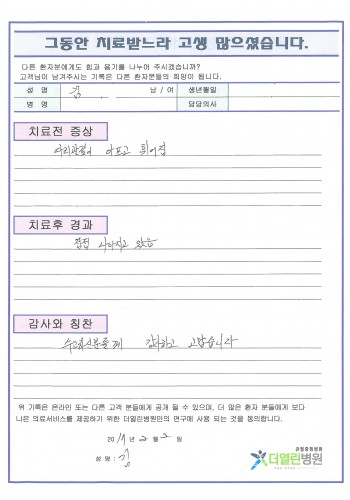 그동안 치료받느라 고생 많으셨습니다.
다른 환자분에게도 힘과 용기를 나누어 주시겠습니까?
고객님이 남겨주시는 기록은 다른 환자분들의 희망이 됩니다.
성 명 김 남 / 여 생년월일
병 명 담당의사
치료전 증상
다리관절이 아프고 휘어짐
치료후 경과
점점 나아지고 있음
감사와 칭찬
수고하신분들께 감사하고 고맙습니다
위 기록은 온라인 또는 다른 고객 분들에게 공개 될 수 있으며, 더 많은 환자 분들에게 보다
나은 의료서비스를 제공하기 위한 더열린병원만의 연구에 사용 되는 것을 동의합니다.
20 년 2 월 일
성 명 : 김
관절호랑병원
더열린병원